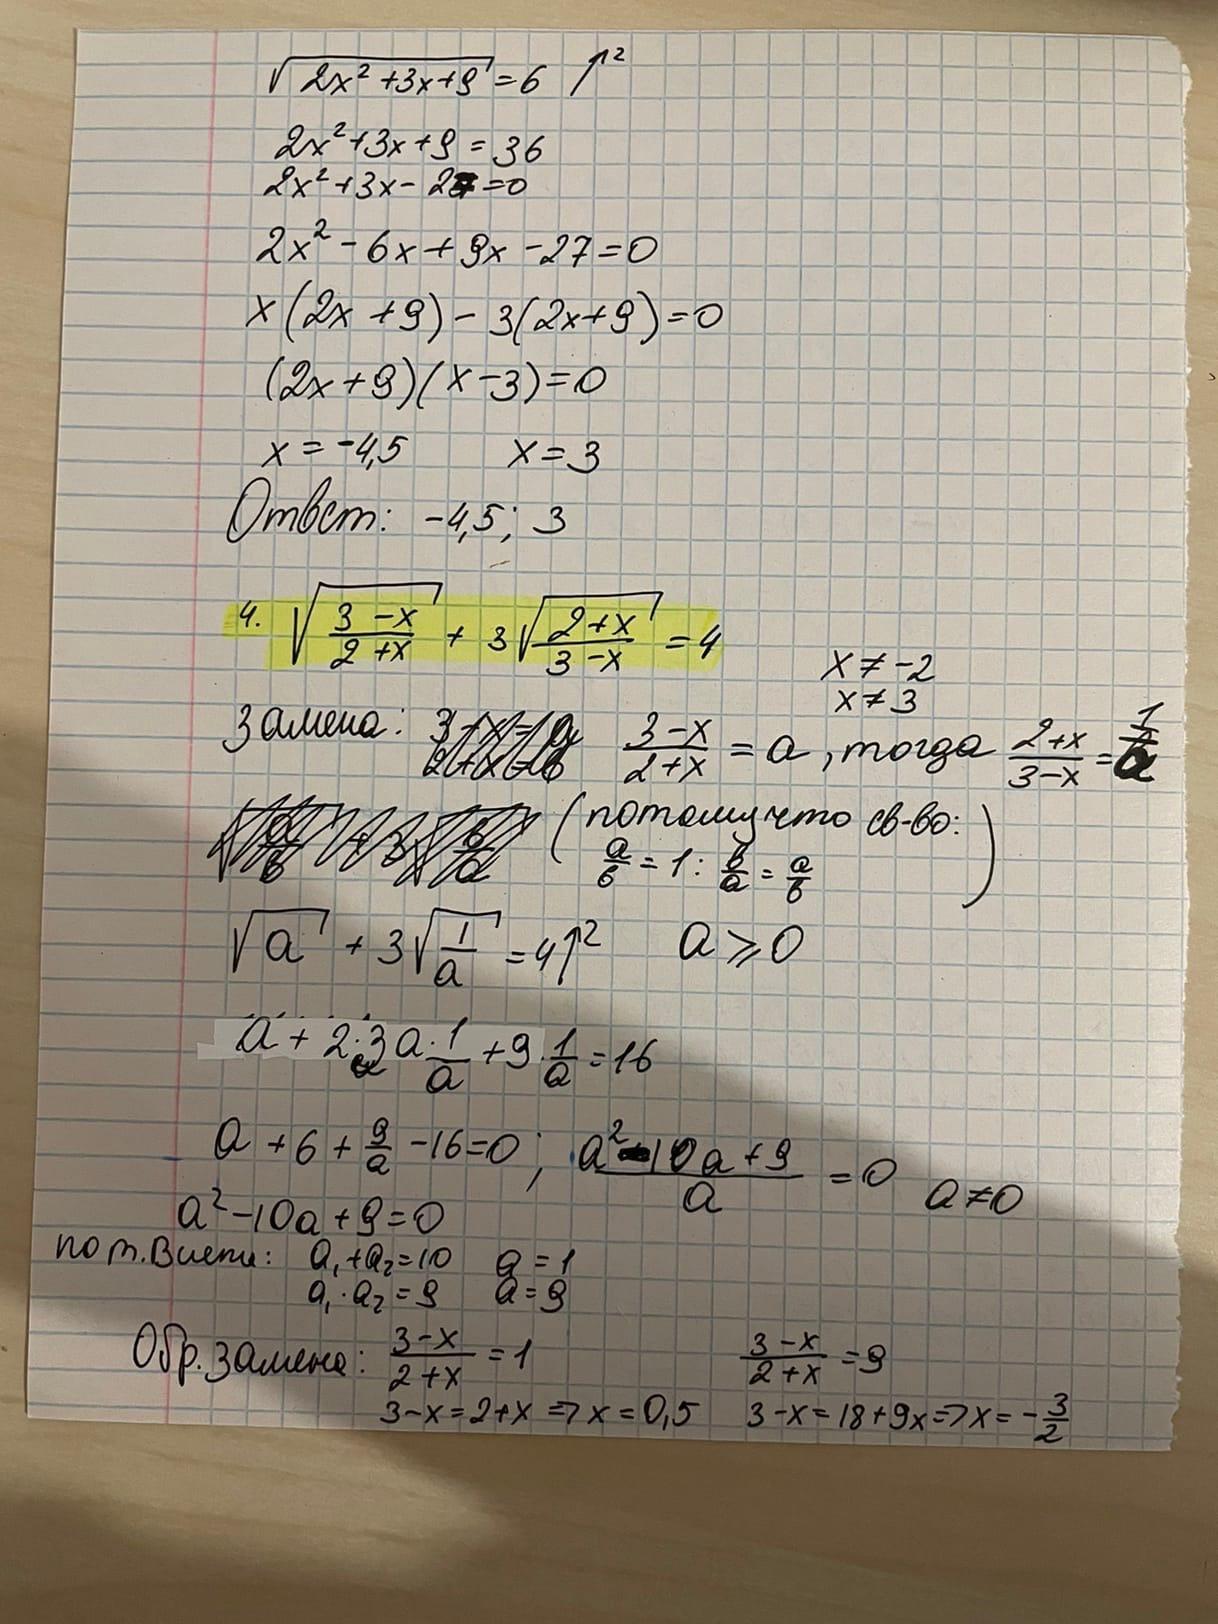 √(2x² + 3x + 9) = 6 ↑²
2x² + 3x + 9 = 36
2x² + 3x - 27 = 0
2x² - 6x + 9x - 27 = 0
x(2x + 9) - 3(2x + 9) = 0
(2x + 9)(x - 3) = 0
x = -4,5 x = 3
Ответ: -4,5; 3
4. √((3 - x)/(2 + x)) + 3√((2 + x)/(3 - x)) = 4
x ≠ -2
x ≠ 3
Замена: (3 - x)/(2 + x) = a, тогда (2 + x)/(3 - x) = 1/a
(потому что св-во:
a/b = 1 : b/a = a/b)
√a + 3√(1/a) = 4 ↑² a ⩾ 0
a + 2·3a·1/a + 9·1/a = 16
a + 6 + 9/a - 16 = 0; (a² - 10a + 9)/a = 0 a ≠ 0
a² - 10a + 9 = 0
по т. Виета: a₁ + a₂ = 10 a = 1
a₁ · a₂ = 9 a = 9
Обр. замена: (3 - x)/(2 + x) = 1 (3 - x)/(2 + x) = 9
3 - x = 2 + x => x = 0,5 3 - x = 18 + 9x => x = -3/2